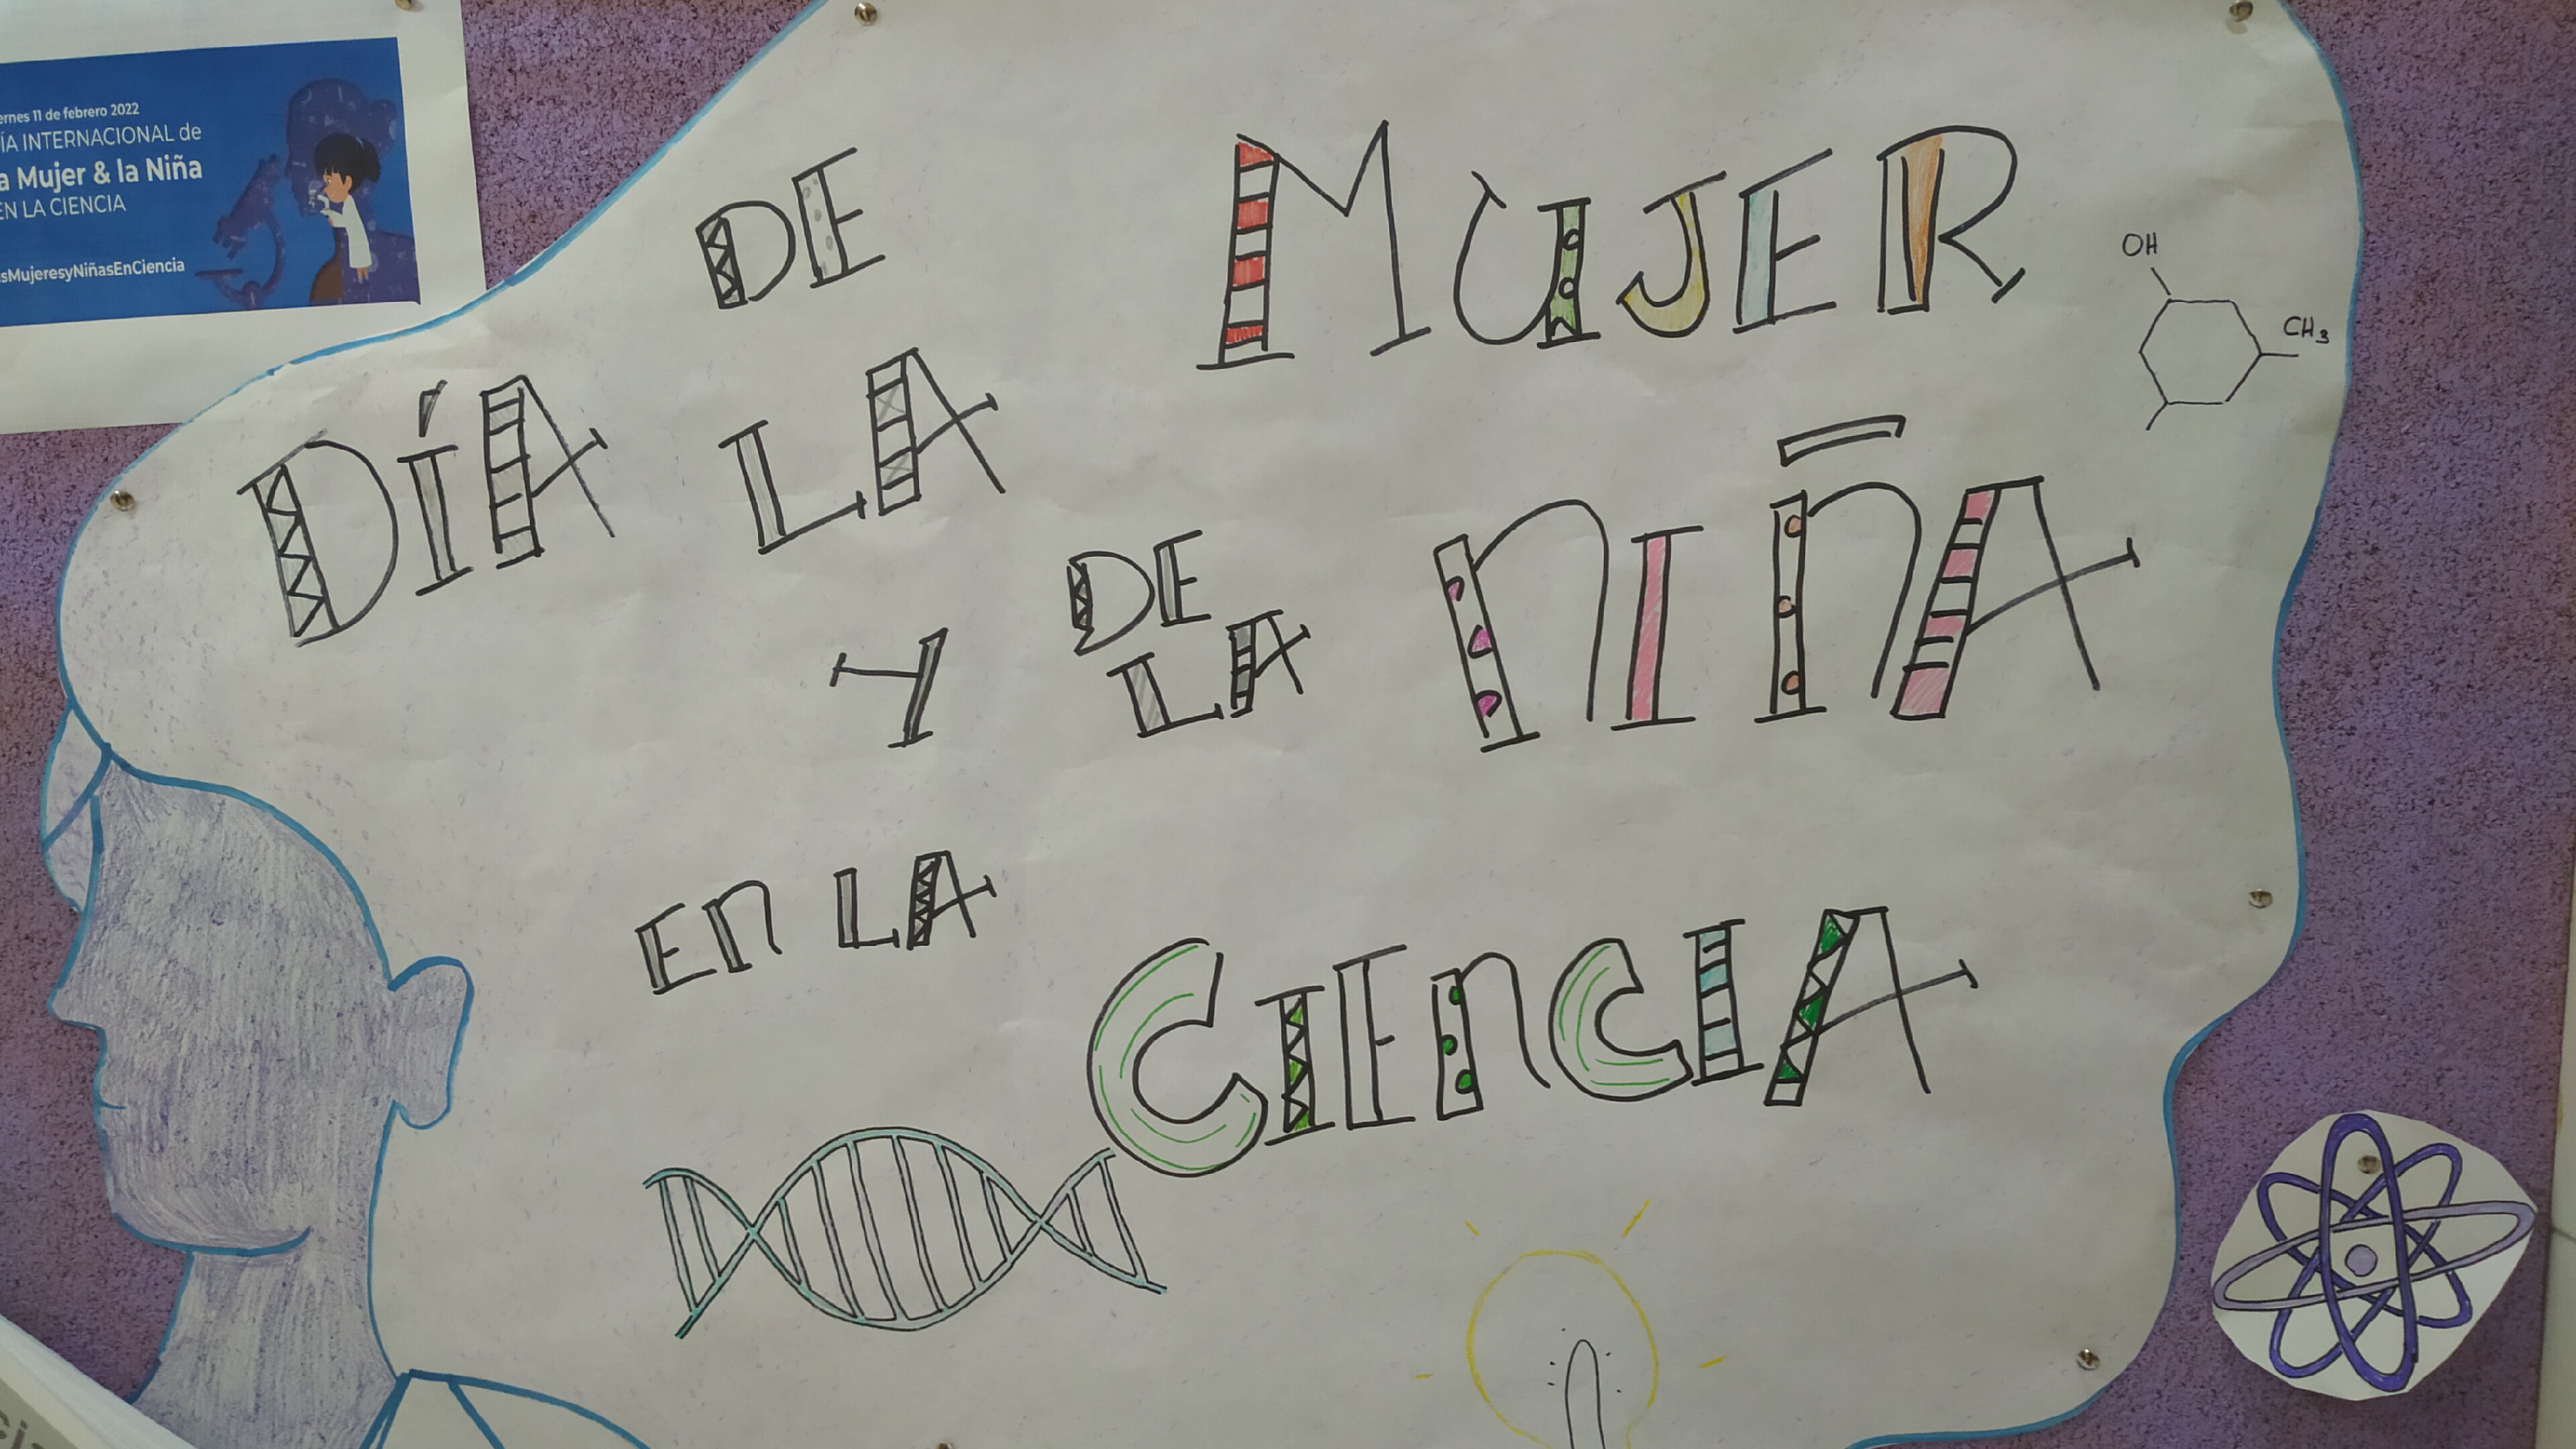 ernes 11 de febrero 2022
ÍA INTERNACIONAL de
a Mujer & la Niña
EN LA CIENCIA
sMujeresyNiñasEnCiencia
DÍA DE LA MUJER
Y DE LA NIÑA
EN LA CIENCIA
OH
CH3